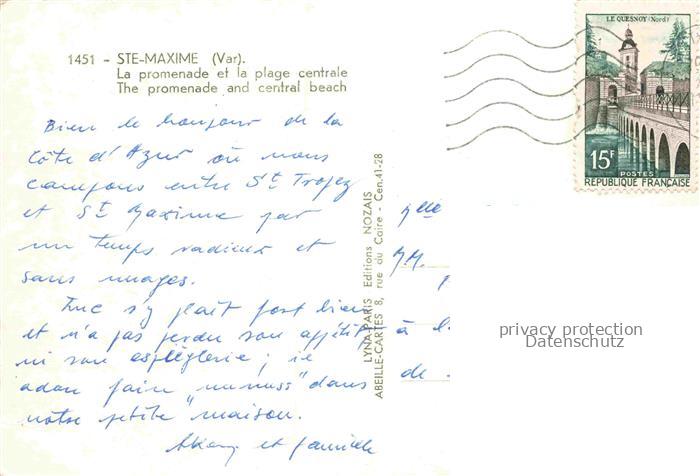 1451 - STE-MAXIME (Var).
La promenade et la plage centrale
The promenade and central beach
Bien le bonjour de la
Côte d'Azur où nous
campons entre St Tropez
et St Maxime par
un temps radieux et
sans nuages.
Luc s'y plait fort bien
et n'a pas perdu son appétit
ni son espièglerie ; il
adore faire "mumuss" dans
notre petite maison.
et famille
LYNA-PARIS Editions NOZAIS
ABEILLE-CARTES 8, rue du Caire - Cen.41-28
Mlle
MM.
à
de
LE QUESNOY (Nord)
15F
POSTES
REPUBLIQUE FRANÇAISE
privacy protection
Datenschutz